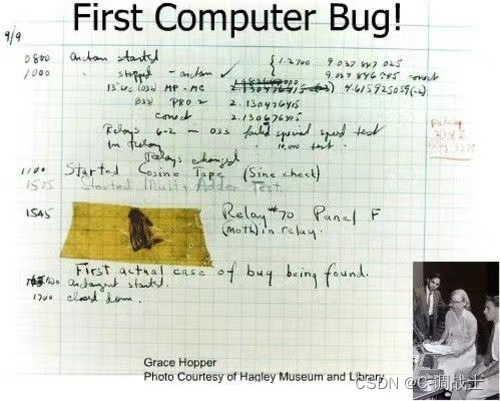 First Computer Bug!
9/9
0800 antan started
1000 " stopped - antan ✓
{ 1.2700 9.037 847 025
9.037 846 995 correct
13"uc (032) MP-MC 4.615925059(-2)
(033) PRO 2 2.130476415
correct 2.130676415
Relays 6-2 in 033 failed special speed test
in relay " 10.000 test.
Relays changed
1100 Started Cosine Tape (Sine check)
1525 Started Multi Adder Test.
1545 Relay #70 Panel F
(moth) in relay.
First actual case of bug being found.
antangent started.
1700 closed down.
Grace Hopper
Photo Courtesy of Hagley Museum and Library
CSDN @C-调战士